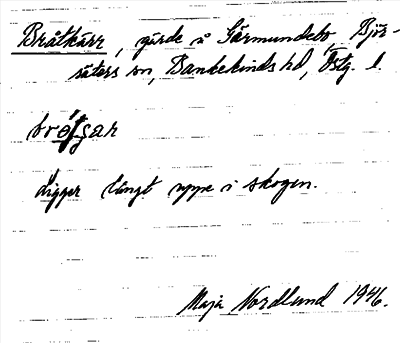 Bråtkärr, gärde å Gärmundebo, Björ-
säters sn, Bankekinds hd, Östg. l.
brǫ́tʃar
Ligger långt uppe i skogen.
Maja Nordlund 1946.